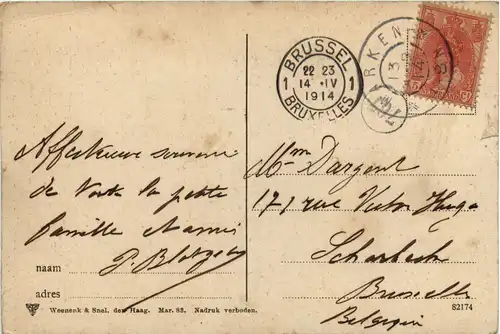 BRUSSEL
1 22 23 1
14 IV
1914
BRUXELLES
Affectueux souvenir
de toute la petite
famille et amis
naam
adres
Weenenk & Snel, den Haag. Mar. 83. Nadruk verboden.
Mme Dargent
171 rue Victor Hugo
Scharbeek
Bruxelles
Belgique
82174